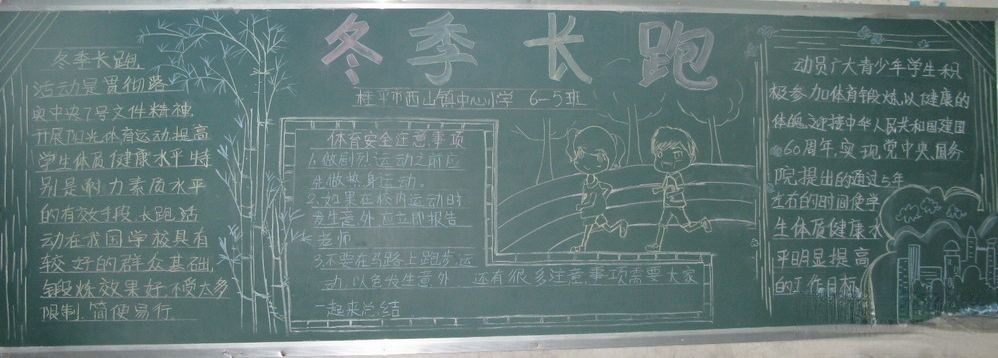 冬季长跑
桂平市西山镇中心小学 6-5班
冬季长跑
活动是贯彻落
实中央7号文件精神,
开展阳光体育运动,提高
学生体质健康水平,特
别是耐力素质水平
的有效手段。长跑活
动在我国学校具有
较好的群众基础,
锻炼效果好,不受太多
限制,简便易行。
体育安全注意事项
1.做剧烈运动之前应
先做热身运动。
2.如果在校内运动时
发生意外,应立即报告
老师
3.不要在马路上跑步运
动,以免发生意外。还有很多注意事项需要大家
一起来总结
动员广大青少年学生积
极参加体育锻炼,以健康的
体魄迎接中华人民共和国建国
60周年,实现党中央、国务
院提出的通过5年
左右的时间使学
生体质健康水
平明显提高
的工作目标。